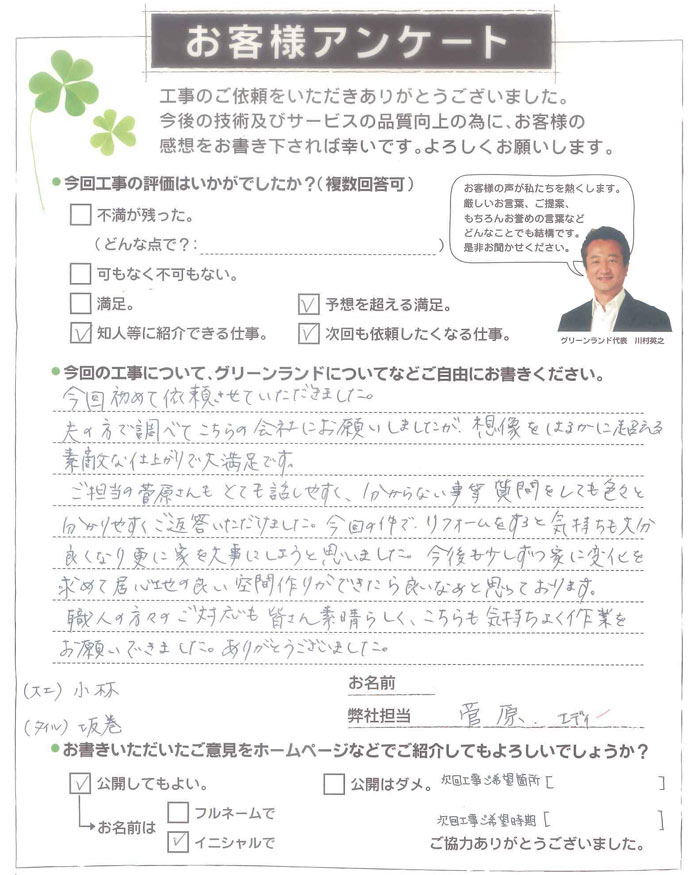 お客様アンケート
工事のご依頼をいただきありがとうございました。
今後の技術及びサービスの品質向上の為に、お客様の
感想をお書き下されば幸いです。よろしくお願いします。
●今回工事の評価はいかがでしたか?(複数回答可)
お客様の声が私たちを熱くします。
厳しいお言葉、ご提案、
もちろんお誉めの言葉など
どんなことでも結構です。
是非お聞かせください。
不満が残った。
(どんな点で?:
)
可もなく不可もない。
満足。
予想を超える満足。
知人等に紹介できる仕事。
次回も依頼したくなる仕事。
グリーンランド代表 川村英之
●今回の工事について、グリーンランドについてなどご自由にお書きください。
今回初めて依頼させていただきました。
夫の方で調べてこちらの会社にお願いしましたが、想像をはるかに超える
素敵な仕上がりで大満足です。
ご担当の菅原さんもとても話しやすく、分からない事等質問をしても色々と
分かりやすくご返答いただけました。今回の件で、リフォームをすると気持ちも大分
良くなり更に家を大事にしようと思いました。今後も少しずつ家に変化を
求めて居心地の良い空間作りができたら良いなぁと思っております。
職人の方々のご対応も皆さん素晴らしく、こちらも気持ちよく作業を
お願いできました。ありがとうございました。
(大工)小林
お名前
(タイル)坂巻
弊社担当 菅原、エディ
●お書きいただいたご意見をホームページなどでご紹介してもよろしいでしょうか?
公開してもよい。
公開はダメ。
次回工事ご希望箇所[ ]
お名前は
フルネームで
次回工事ご希望時期[ ]
イニシャルで
ご協力ありがとうございました。